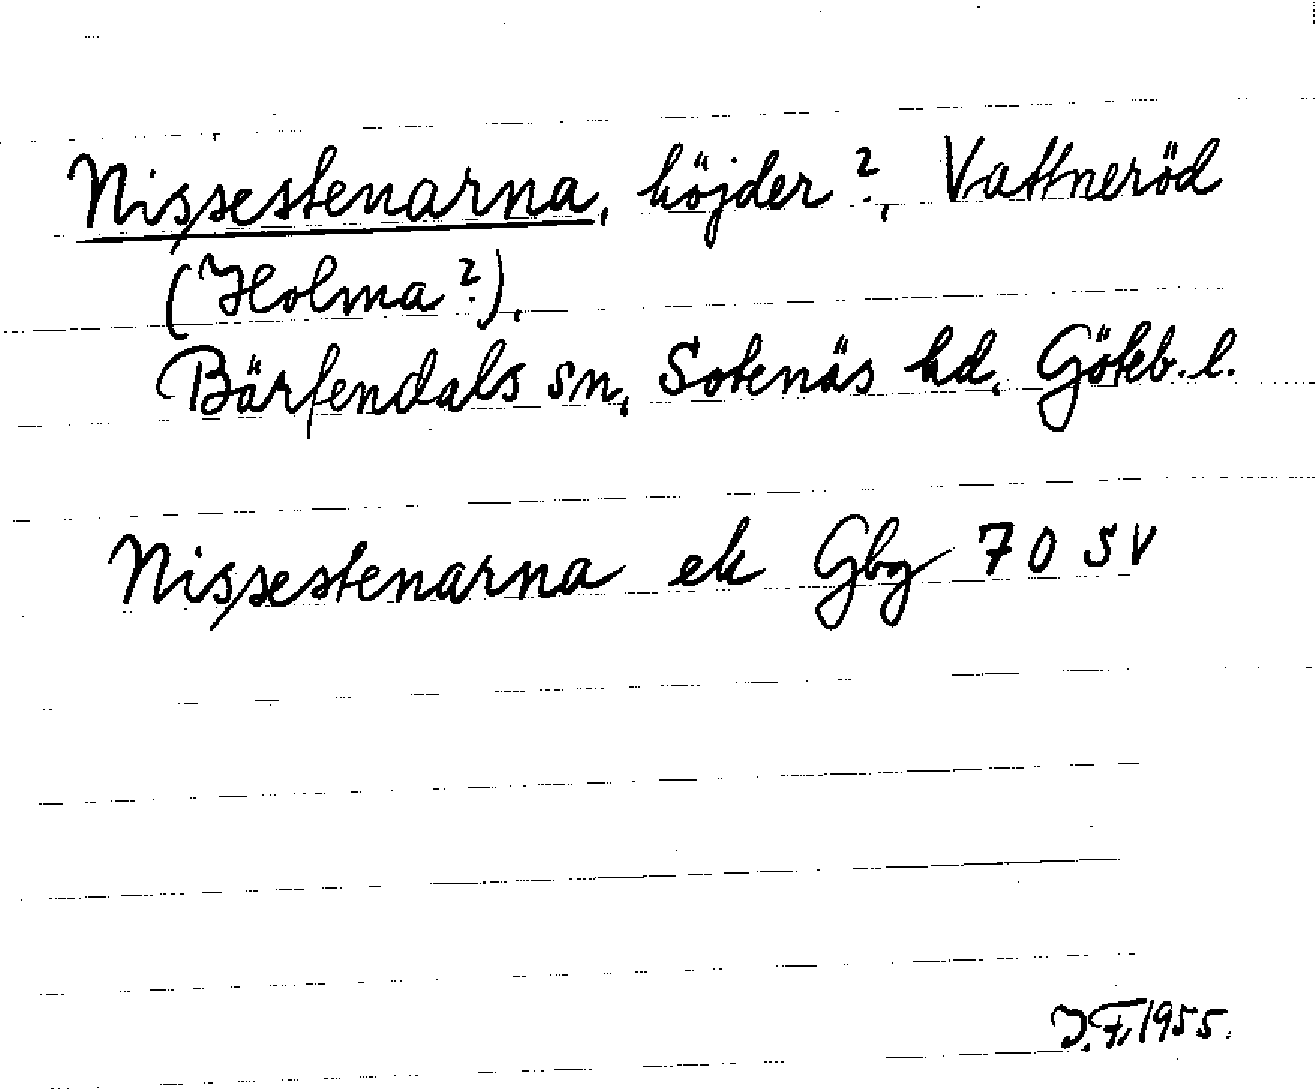 Nissestenarna, höjder?, Vattneröd
(Holma?).
Bärfendals sn, Sotenäs hd, Göteb. l.
Nissestenarna ek Gbg 70 SV
J.F. 1955.